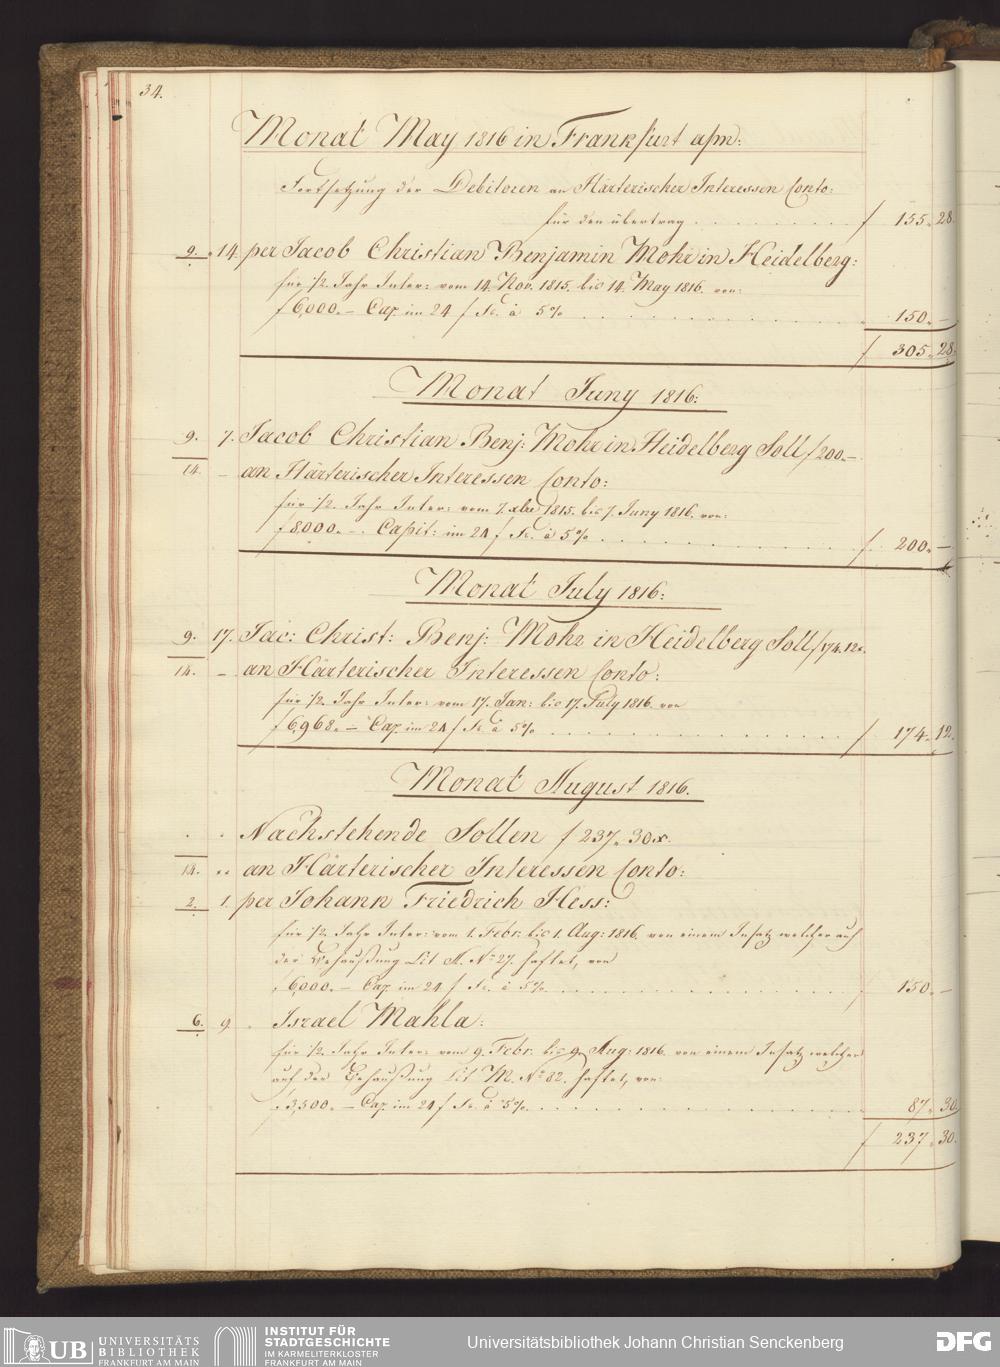 34.
Monat May 1816 in Frankfurt a/m:
Fortsetzung der Debitoren an Härterischer Interessen Conto:
für den übertrag . . . . . . . . f 155. 28.
9. 14. per Jacob Christian Benjamin Mohr in Heidelberg:
für 1/2 Jahr Inter: vom 14. Nov. 1815. bis 14. May 1816. von:
f 6,000. – Cap. im 24 f Fs. à 5% . . . . . . . . 150. –
f 305. 28.
Monat Juny 1816:
9. 7. Jacob Christian Benj: Mohr in Heidelberg Soll f 200. –
14. – an Härterischer Interessen Conto:
für 1/2 Jahr Inter: vom 7. xbr 1815. bis 7. Juny 1816. von:
f 8,000. – Capit: im 24 f Fs. à 5% . . . . . . . . f 200. –
Monat July 1816:
9. 17. Jac: Christ: Benj: Mohr in Heidelberg Soll f 174. 12x.
14. – an Härterischer Interessen Conto:
für 1/2 Jahr Inter: vom 17. Jan: bis 17. July 1816. von
f 6,968. – Cap. im 24 f Fs. à 5% . . . . . . . . f 174. 12.
Monat August 1816.
Nachstehende Sollen f 237. 30x.
14. an Härterischer Interessen Conto:
2. 1. per Johann Friedrich Hess:
für 1/2 Jahr Inter: vom 1. Febr: bis 1. Aug: 1816. von einem Insatz welcher auf
der Behaußung Lit A. No 27. haftet, von
f 6,000. – Cap. im 24 f Fs. à 5% . . . . . . . . 150. –
6. 9. Israel Mahla:
für 1/2 Jahr Inter: vom 9. Febr. bis 9. Aug: 1816. von einem Insatz welcher
auf der Behaußung Lit M. No 82. haftet, von:
f 3,500. – Cap. im 24 f Fs. à 5% . . . . . . . . 87. 30.
f 237. 30.
UB UNIVERSITÄTS BIBLIOTHEK FRANKFURT AM MAIN
INSTITUT FÜR STADTGESCHICHTE IM KARMELITERKLOSTER FRANKFURT AM MAIN
Universitätsbibliothek Johann Christian Senckenberg
DFG